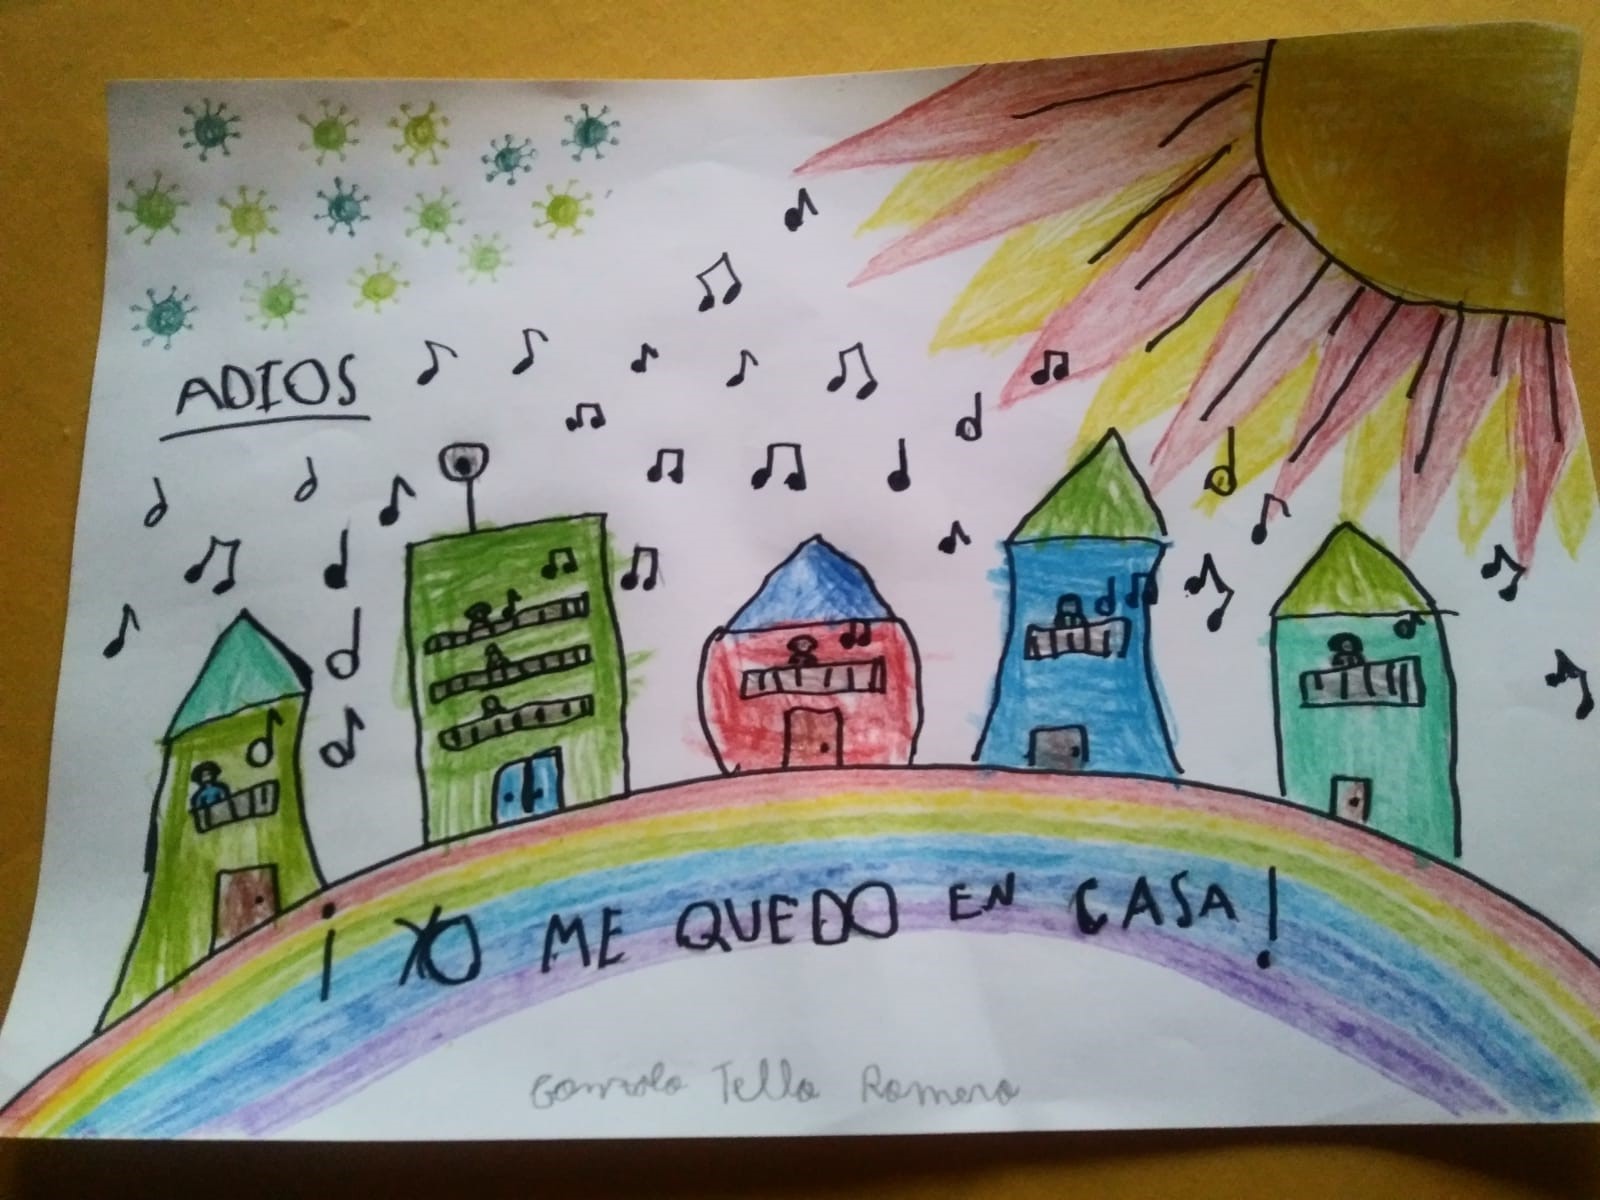 ADIOS
¡YO ME QUEDO EN CASA!
Gonzalo Tello Romero